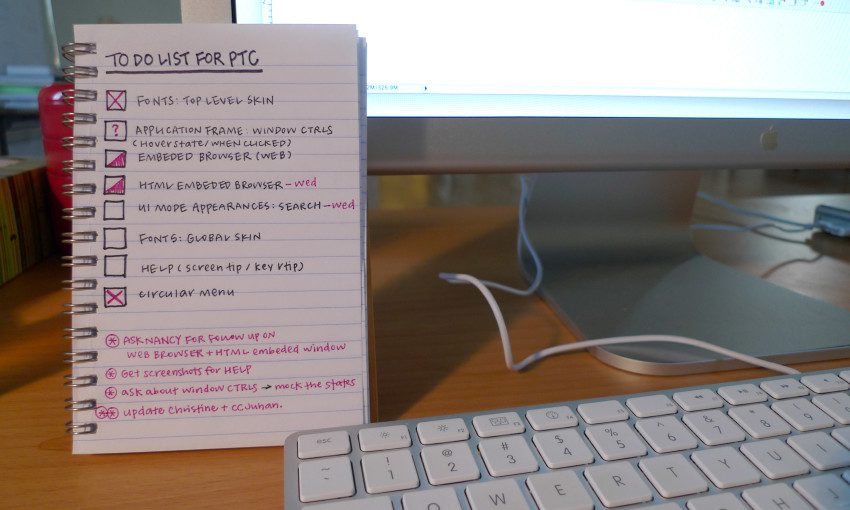 TO DO LIST FOR PTC
FONTS: TOP LEVEL SKIN
? APPLICATION FRAME: WINDOW CTRLS
(Hover state/WHEN CLICKED)
EMBEDED BROWSER (WEB)
HTML EMBEDED BROWSER - wed
UI MODE APPEARANCES: SEARCH - wed
FONTS: GLOBAL SKIN
HELP (screen tip / key tip)
circular menu
ASK NANCY FOR FOLLOW UP ON
WEB BROWSER + HTML embeded window
Get screenshots for HELP
ask about window CTRLS → mock the states
update Christine + CC Juhan.
esc F1 F2 F3 F4
~ ! @ # $ % ^ & * (
` 1 2 3 4 5 6 7 8 9
Q W E R T Y U I
H J